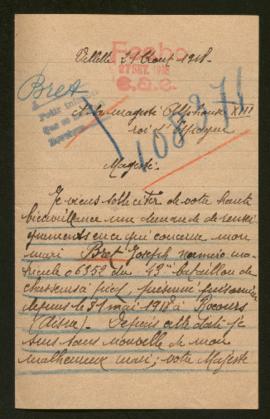 Villette 29 Août 1918.
Bret
A sa majesté Alphonse XIII
roi d'Espagne
Majesté
Je viens solliciter de votre haute
bienveillance une demande de rensei
gnements en ce qui concerne mon
mari Bret Joseph numéro ma-
tricule 06352 du 49e bataillon de
chasseurs à pied, présumé prisonnier
depuis le 31 mai 1918 à Rocourt
(Aisne). Depuis cette date je
suis sans nouvelle de mon
malheureux mari; votre Majesté